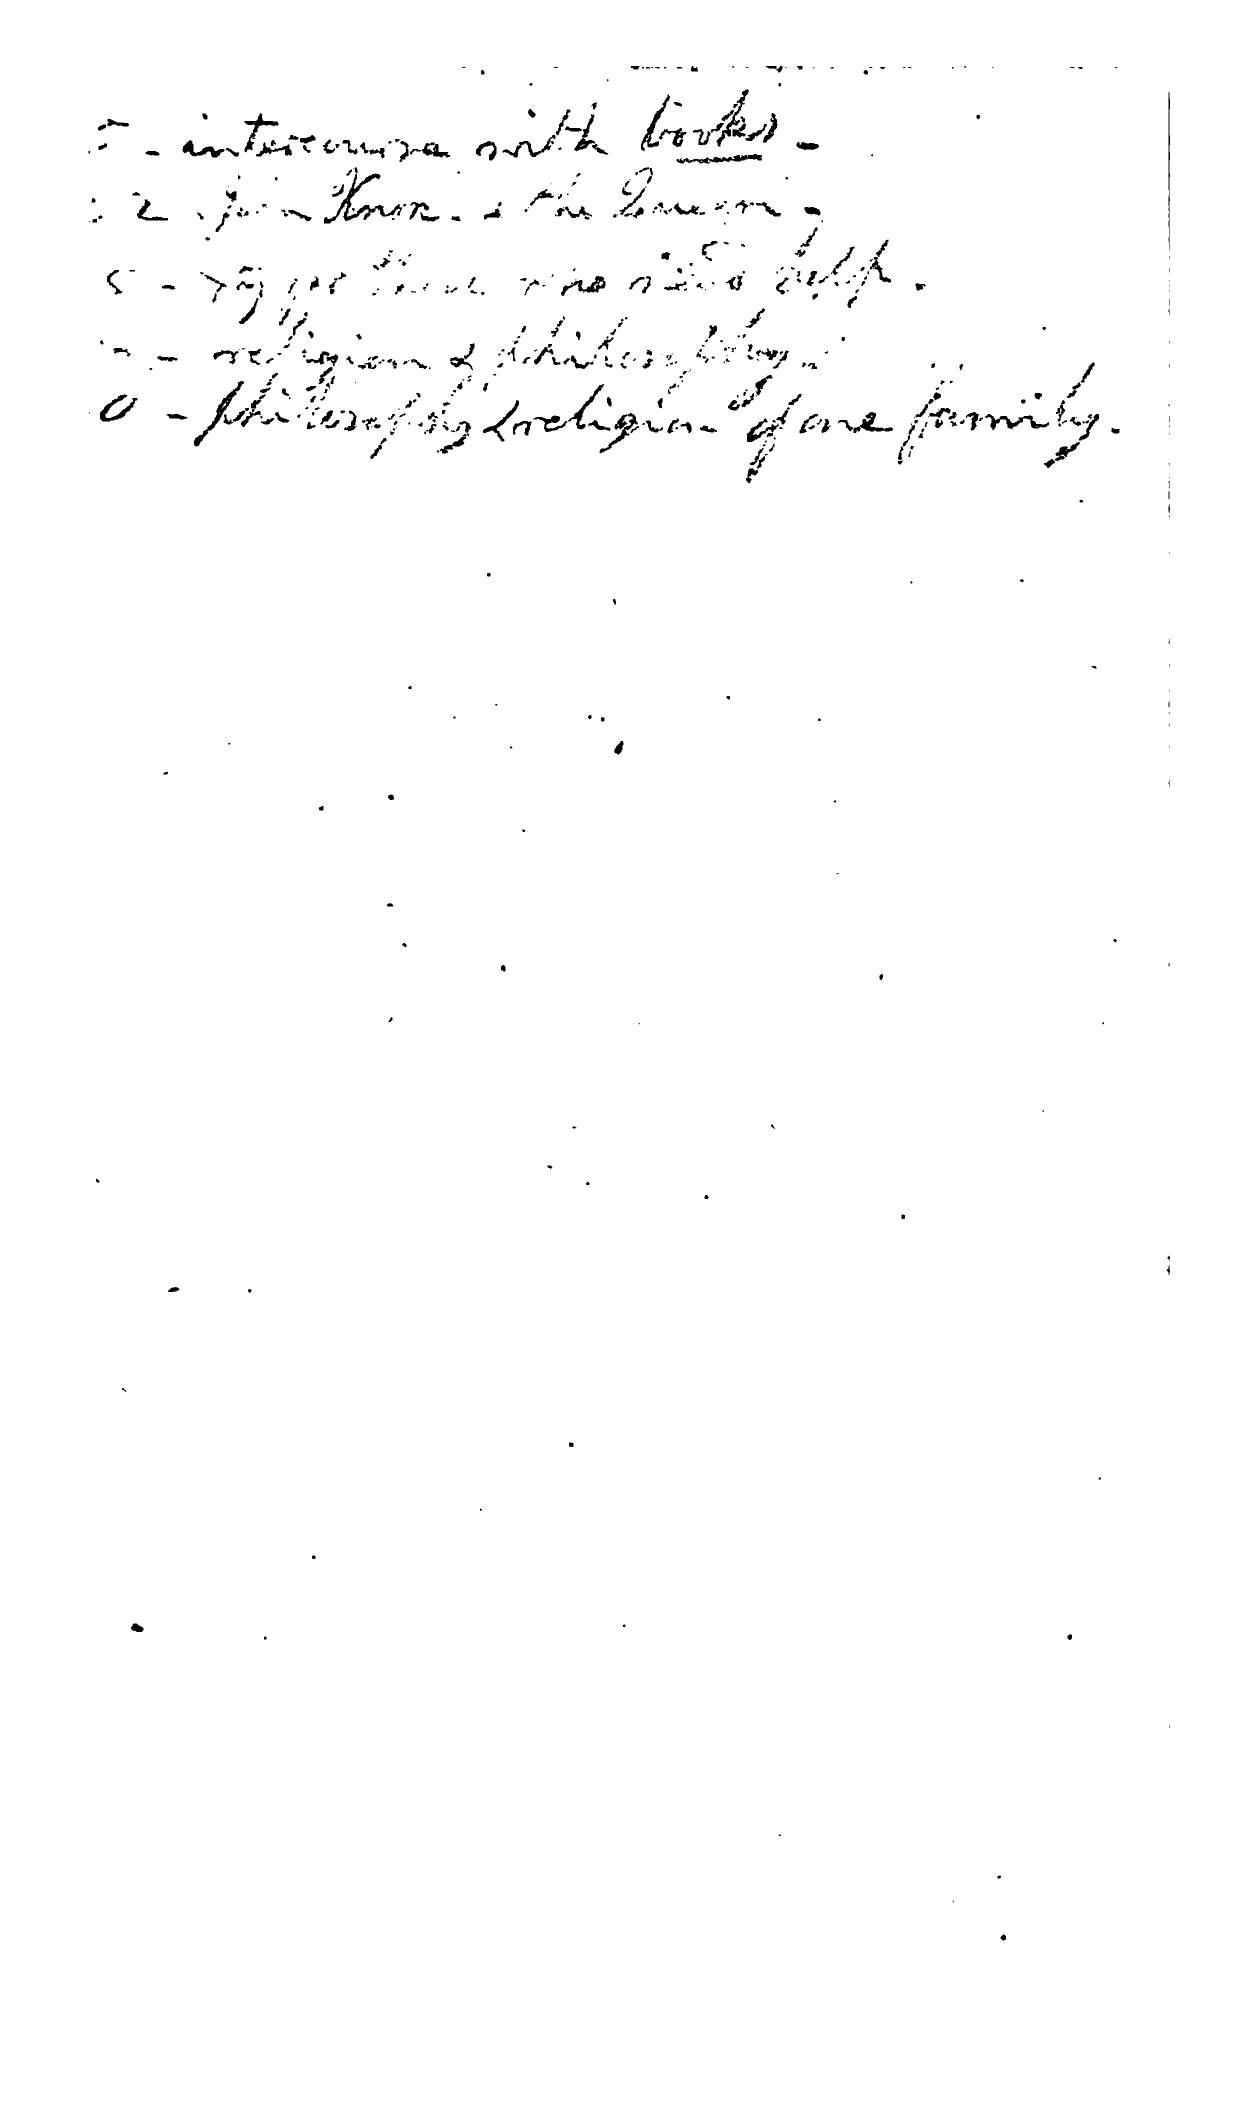 5 - intercourse with books -
2 John Knox & the Queen -
5 - for those who need help.
- religion & philosophy.
0 - philosophy & religion "of one family.